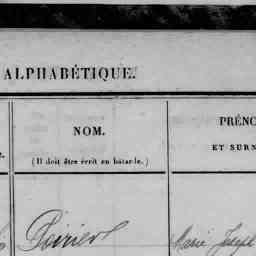 ALPHABÉTIQUE.
NOM.
(Il doit être écrit en bâtarde.)
PRÉNO
ET SURN
Poirier
Marie Joseph